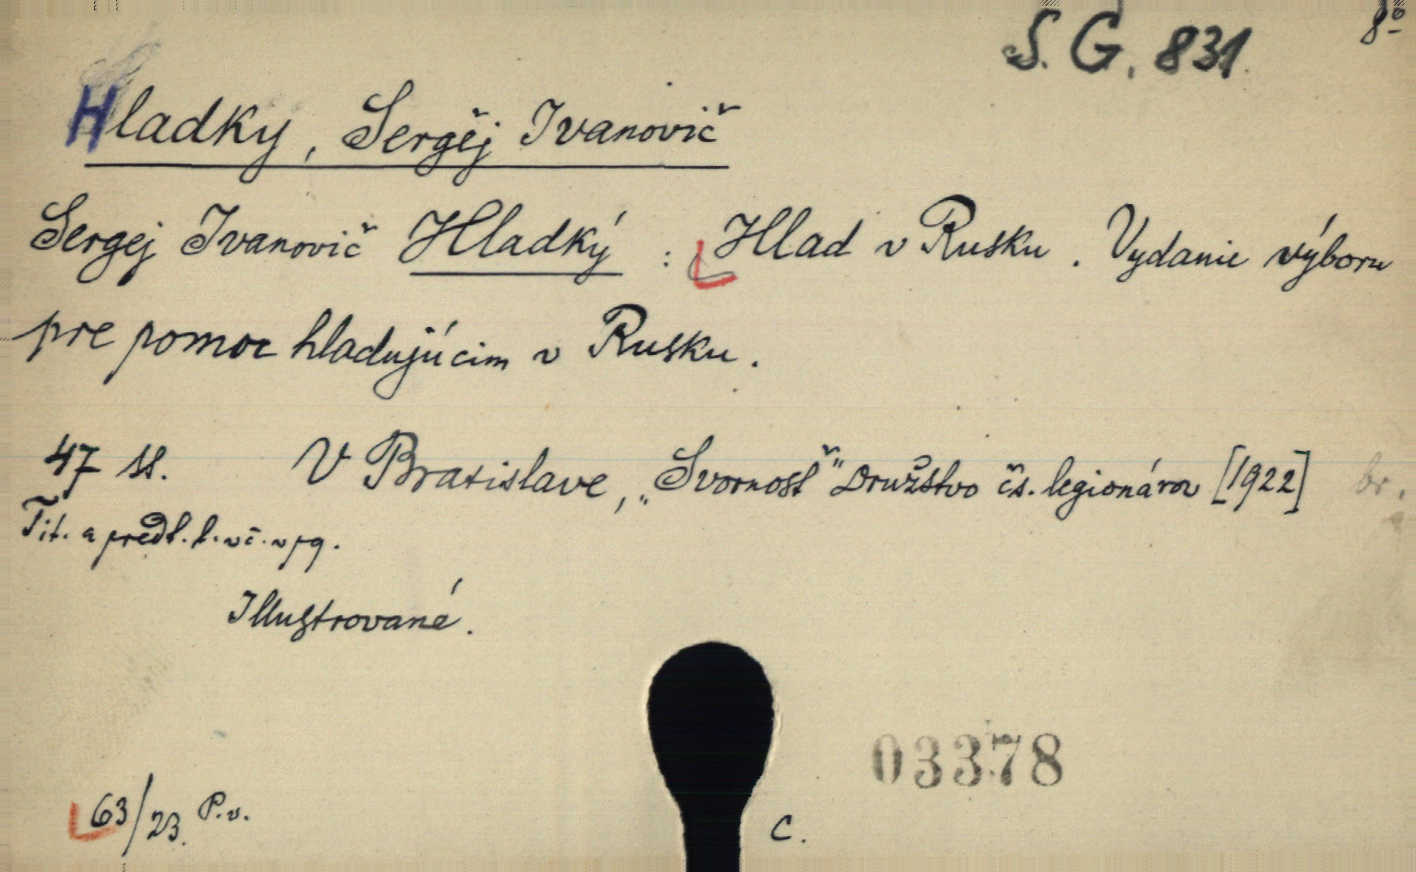 S. G. 831. 8º
Hladky, Sergěj Ivanovič
Sergej Ivanovič Hladký : Hlad v Rusku. Vydanie výboru
pre pomoc hladujúcim v Rusku.
47 ss. V Bratislave, „Svornosť" Družstvo čs. legionárov [1922] br.
Tit. a predl. l. vč. v pg.
Illustrované.
03378
63/23. P.v. C.